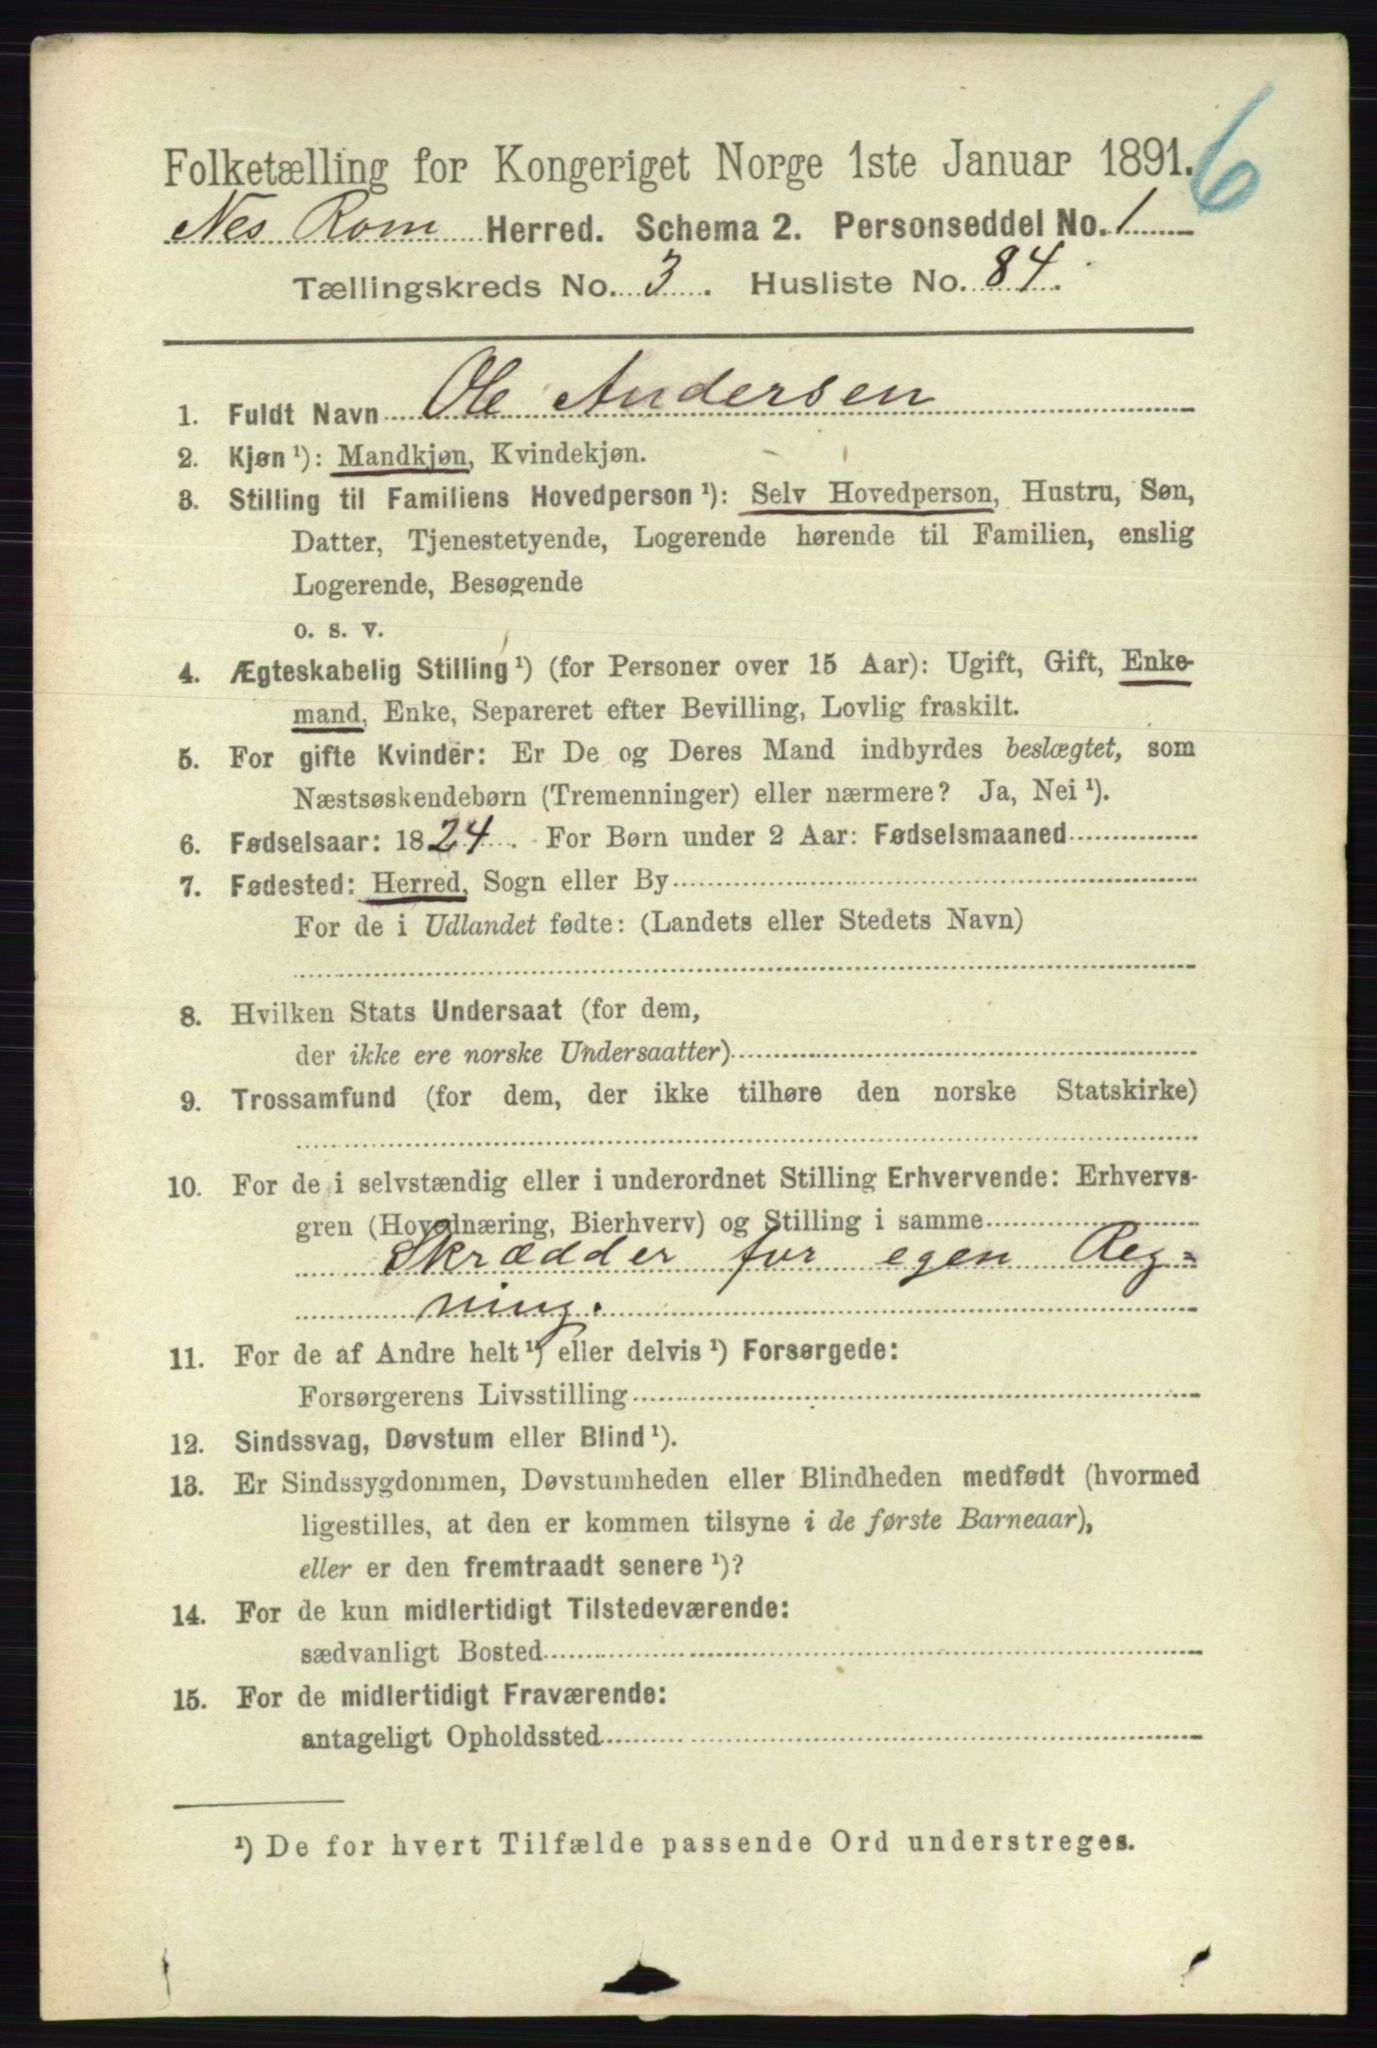 Folketælling for Kongeriget Norge 1ste Januar 1891.
6
Nes Rom Herred. Schema 2. Personseddel No. 1
Tællingskreds No. 3. Husliste No. 84.
1. Fuldt Navn Ole Andersen
2. Kjøn ¹): Mandkjøn, Kvindekjøn.
3. Stilling til Familiens Hovedperson ¹): Selv Hovedperson, Hustru, Søn,
Datter, Tjenestetyende, Logerende hørende til Familien, enslig
Logerende, Besøgende
o. s. v.
4. Ægteskabelig Stilling ¹) (for Personer over 15 Aar): Ugift, Gift, Enke-
mand, Enke, Separeret efter Bevilling, Lovlig fraskilt.
5. For gifte Kvinder: Er De og Deres Mand indbyrdes beslægtet, som
Næstsøskendebørn (Tremenninger) eller nærmere? Ja, Nei ¹).
6. Fødselsaar: 1824. For Børn under 2 Aar: Fødselsmaaned
7. Fødested: Herred, Sogn eller By
For de i Udlandet fødte: (Landets eller Stedets Navn)
8. Hvilken Stats Undersaat (for dem,
der ikke ere norske Undersaatter)
9. Trossamfund (for dem, der ikke tilhøre den norske Statskirke)
10. For de i selvstændig eller i underordnet Stilling Erhvervende: Erhvervs-
gren (Hovednæring, Bierhverv) og Stilling i samme
Skrædder for egen Reg=
ning.
11. For de af Andre helt ¹) eller delvis ¹) Forsørgede:
Forsørgerens Livsstilling
12. Sindssvag, Døvstum eller Blind ¹).
13. Er Sindssygdommen, Døvstumheden eller Blindheden medfødt (hvormed
ligestilles, at den er kommen tilsyne i de første Barneaar),
eller er den fremtraadt senere ¹)?
14. For de kun midlertidigt Tilstedeværende:
sædvanligt Bosted
15. For de midlertidigt Fraværende:
antageligt Opholdssted
¹) De for hvert Tilfælde passende Ord understreges.